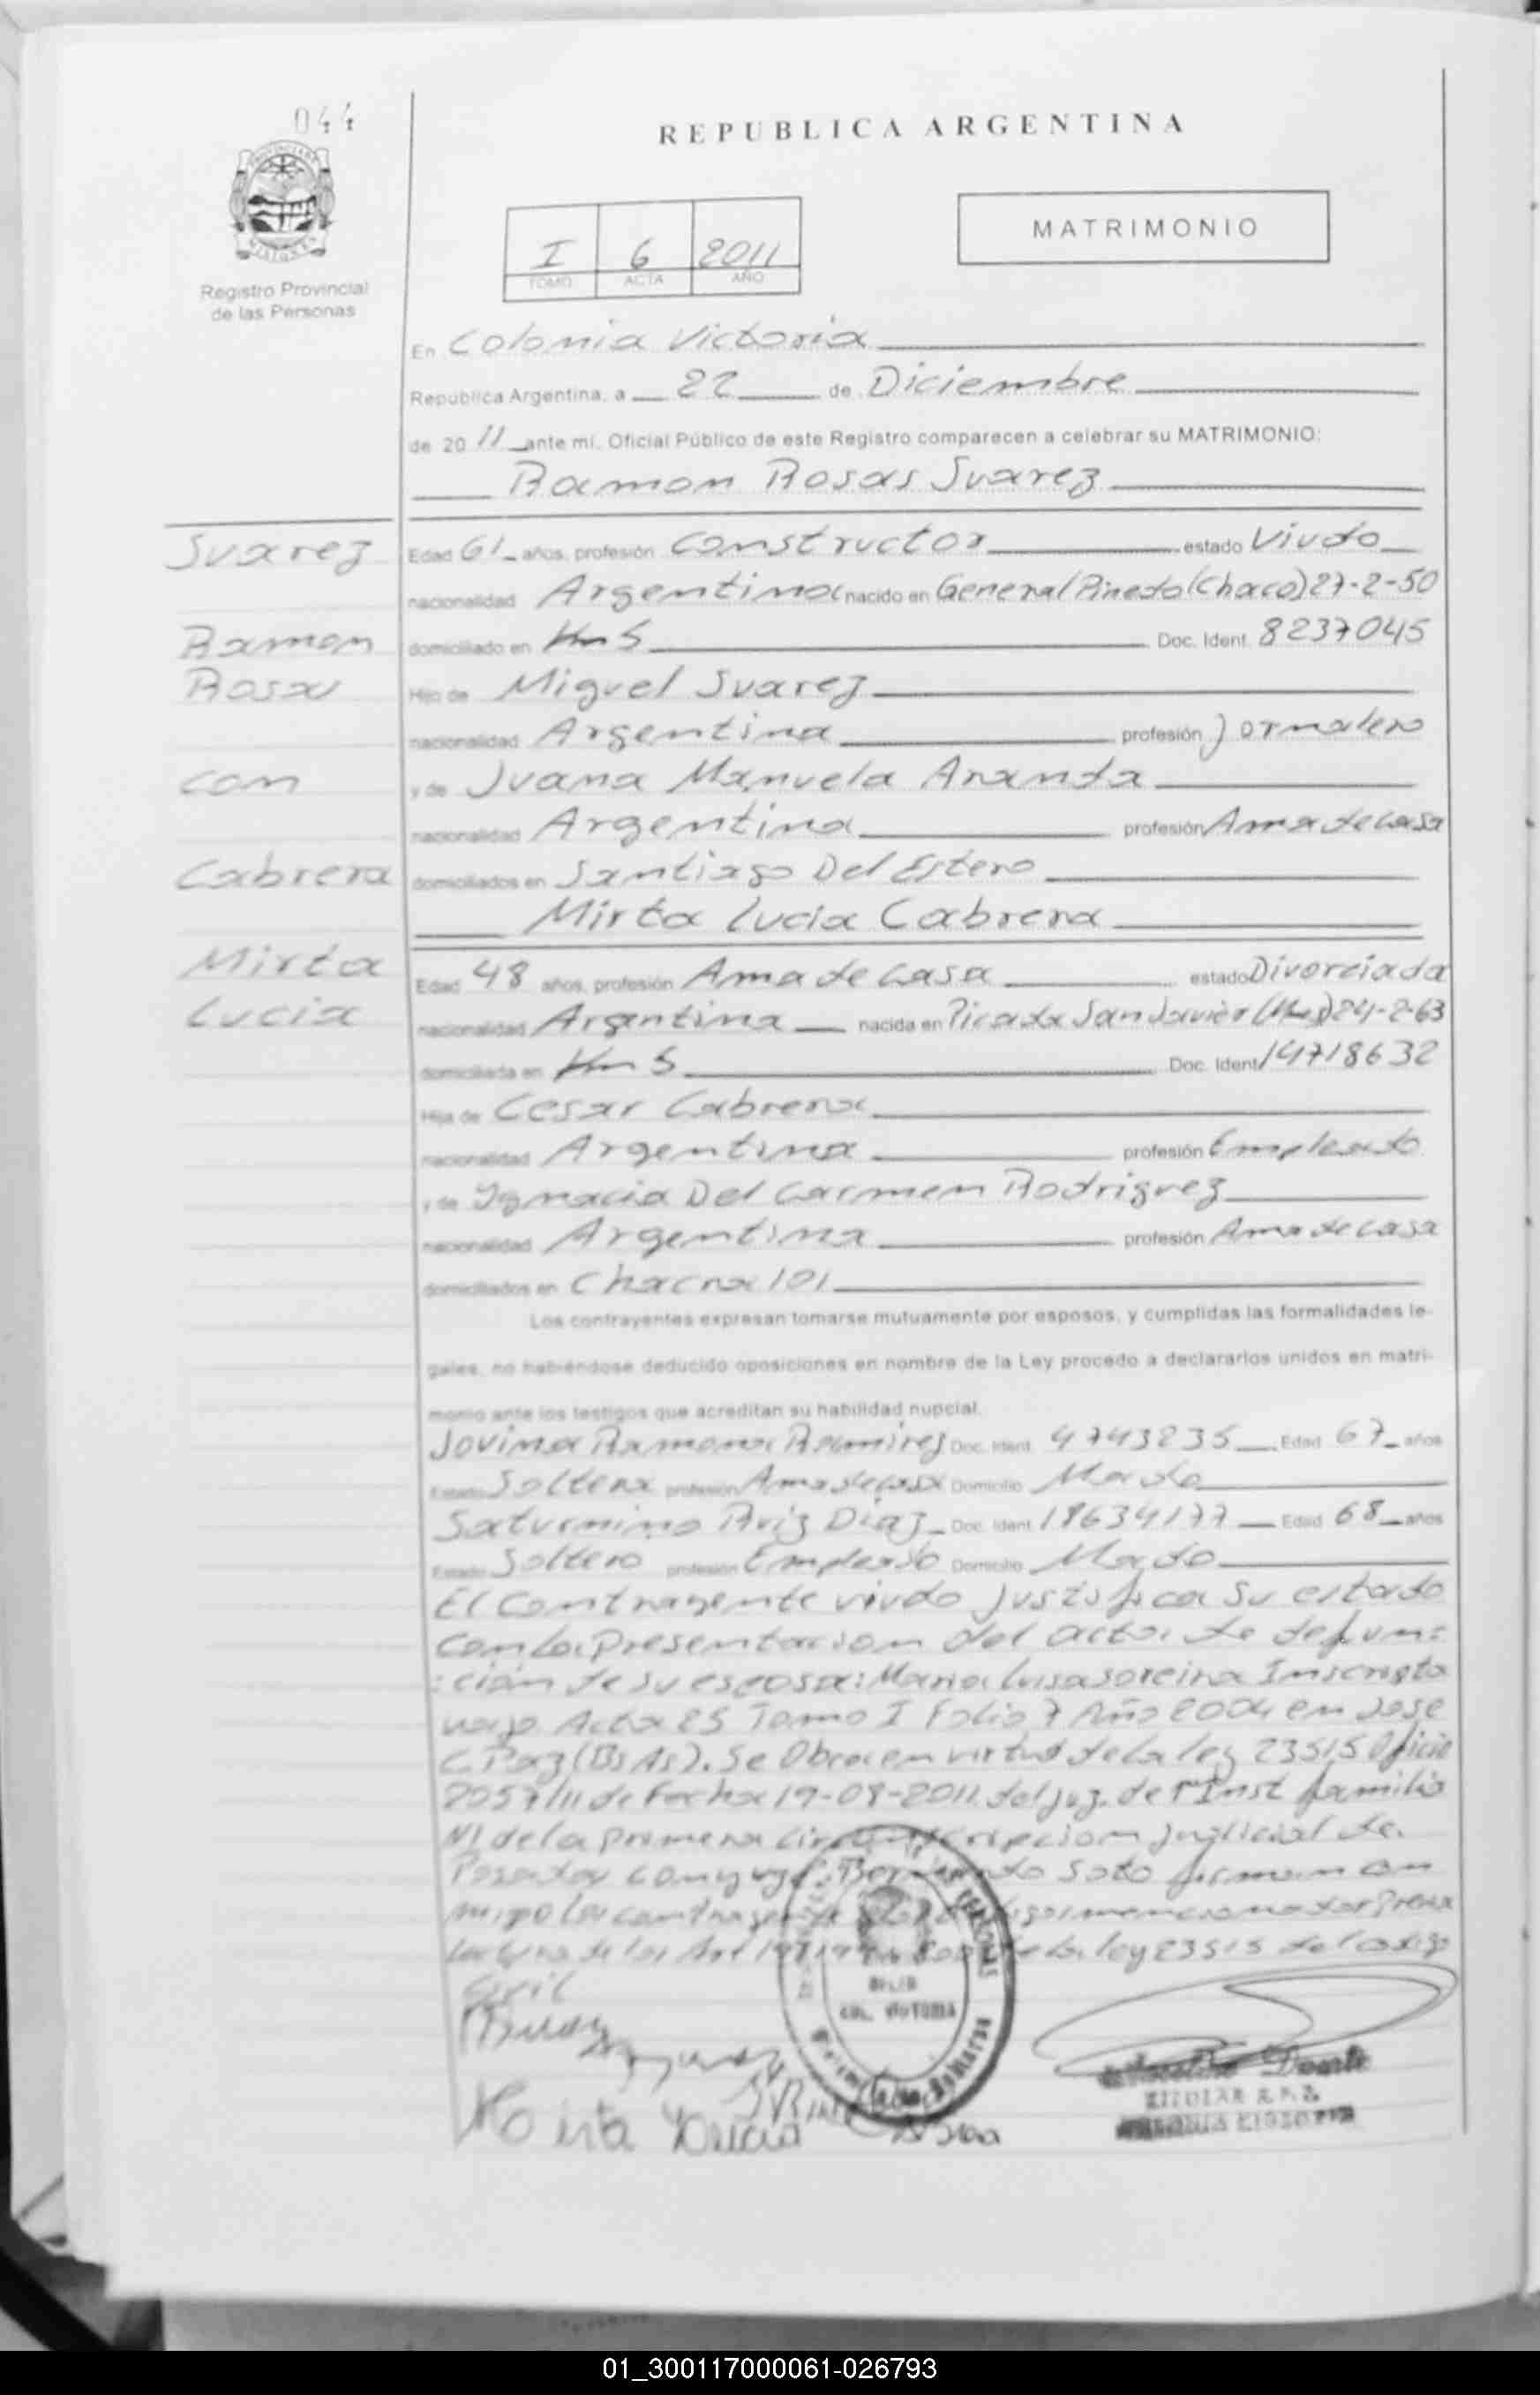 044
REPUBLICA ARGENTINA
MATRIMONIO
I 6 2011
TOMO ACTA AÑO
Registro Provincial
de las Personas
En Colonia Victoria
República Argentina, a 22 de Diciembre
de 2011 ante mí, Oficial Público de este Registro comparecen a celebrar su MATRIMONIO:
Ramon Rosas Suarez
Suarez
Ramon
Rosas
con
Cabrera
Mirta
Lucia
Edad 61 años, profesión Constructor estado Viudo
nacionalidad Argentina nacido en General Pinedo (Chaco) 27-2-50
domiciliado en Km 5 Doc. Ident. 8237045
Hijo de Miguel Suarez
nacionalidad Argentina profesión Jornalero
y de Juana Manuela Aranda
nacionalidad Argentina profesión Ama de casa
domiciliados en Santiago Del Estero
Mirta Lucia Cabrera
Edad 48 años, profesión Ama de casa estado Divorciada
nacionalidad Argentina nacida en Picada San Javier (Mnes) 24-2-63
domiciliada en Km 5 Doc. Ident 14718632
Hija de Cesar Cabrera
nacionalidad Argentina profesión Empleado
y de Ignacia Del Carmen Rodriguez
nacionalidad Argentina profesión Ama de casa
domiciliados en Chacra 101
Los contrayentes expresan tomarse mutuamente por esposos, y cumplidas las formalidades le-
gales, no habiéndose deducido oposiciones en nombre de la Ley procedo a declararlos unidos en matri-
monio ante los testigos que acreditan su habilidad nupcial.
Jovina Ramona Ramirez Doc. Ident. 4743235 Edad 67 años
Estado Soltera profesión Ama de casa Domicilio
Saturnino Ruiz Diaz Doc. Ident 18634177 Edad 68 años
Estado Soltero profesión Empleado Domicilio
El Contrayente viudo justifica su estado
con la presentacion del acta de defun=
:cion de su esposa: Maria Luisa Inscripta
bajo Acta 25 Tomo I Folio 7 Año 2004 en Jose
C. Paz (Bs As). Se Obra en virtud de la ley 23515 Oficio
2057/11 de Fecha 19-08-2011 del juz. de 1ª Inst familia
N1 de la primera circunscripcion judicial de
Posadas conyuge: Soto firman con
migo los contrayentes mencionados previa
lectura de los Art de la ley 23515 del codigo
Civil
COL. VICTORIA
Mirta Lucia
Duarte
TITULAR R.P.
COLONIA VICTORIA
01_300117000061-026793